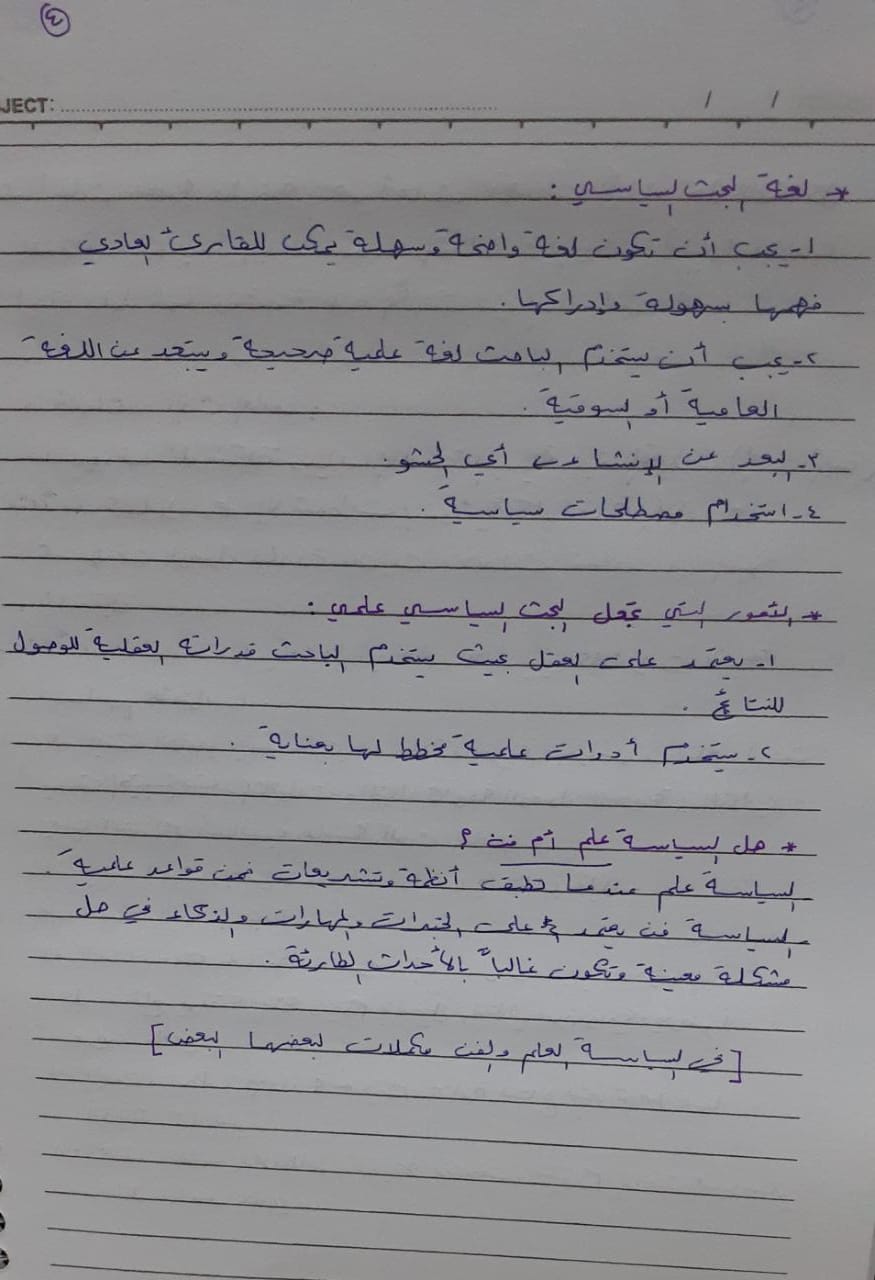 ٤
JECT: / /
* لغة البحث السياسي :
١- يجب أن تكون لغة واضحة وسهلة يمكن للقارئ العادي
فهمها بسهولة وإدراكها.
٢- يجب أن يستخدم الباحث لغة علمية صحيحة ويبتعد عن اللغة
العامية أو السوقية .
٣- البعد عن الإنشاء أي الحشو.
٤- استخدام مصطلحات سياسية .
* التي تجعل البحث السياسي علمي :
١- يعتمد على العقل بحيث يستخدم الباحث قدراته العقلية للوصول
للنتائج .
٢- يستخدم أدوات علمية مخطط لها بعناية .
* هل السياسة علم أم فن ؟
السياسة علم عندما تطبق أنظمة وتشريعات ضمن قواعد علمية .
السياسة فن يعتمد على الخبرات والمهارات والذكاء في حل
مشكلة معينة وتكون غالباً بالأحداث الطارئة .
[في السياسة العلم والفن مكملات لبعضها البعض]